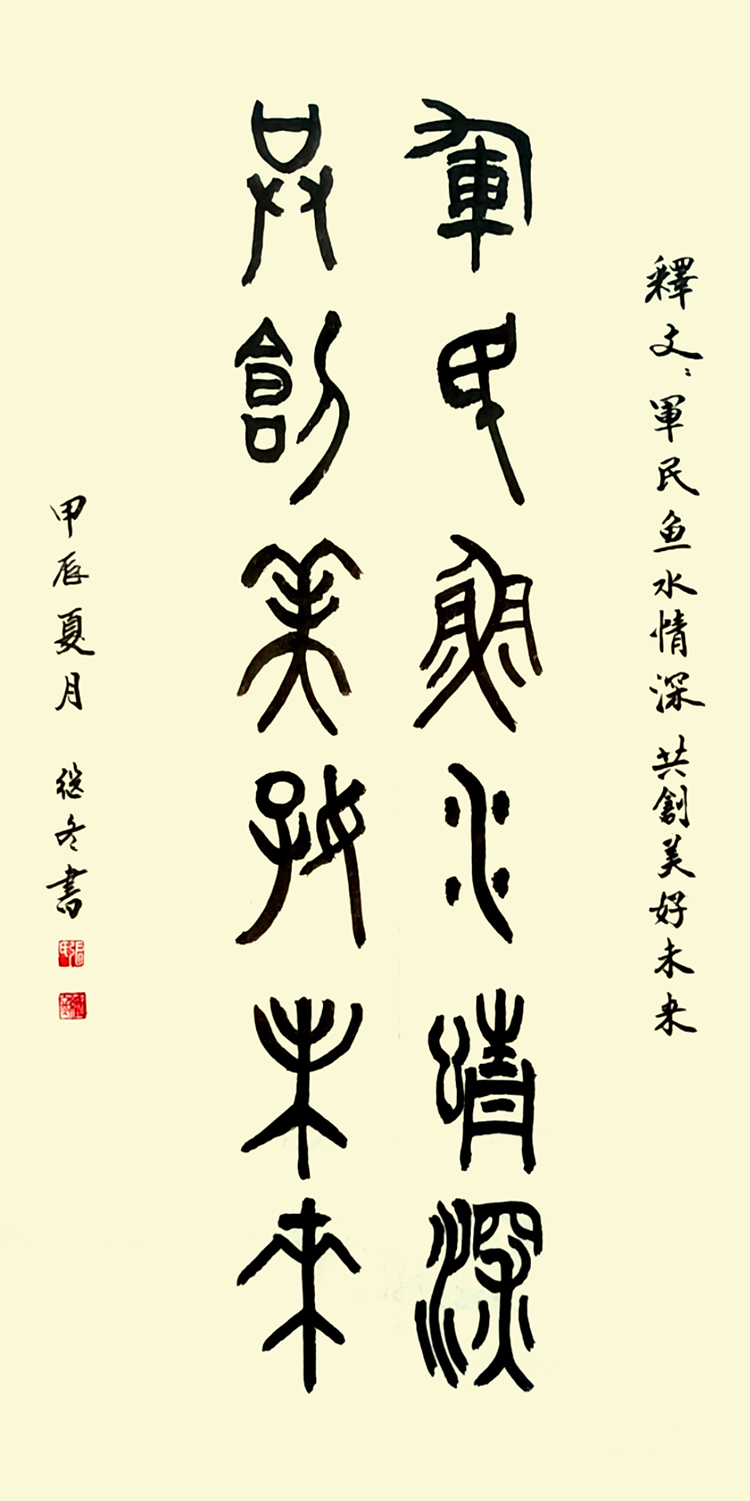 釋文：軍民鱼水情深共創美好未来
軍民魚水情深
共創美好未來
甲辰夏月 继冬書